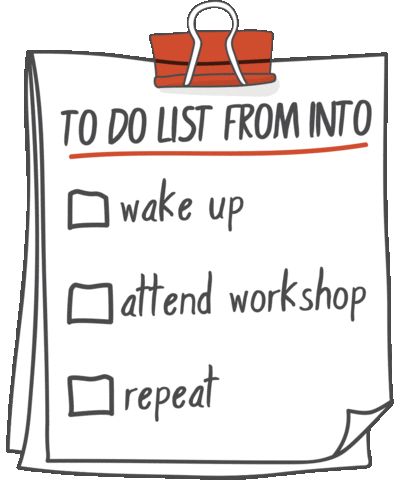 TO DO LIST FROM INTO
wake up
attend workshop
repeat